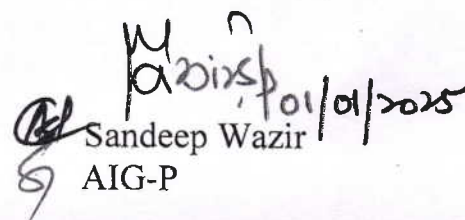 01/01/2025
Sandeep Wazir
AIG-P